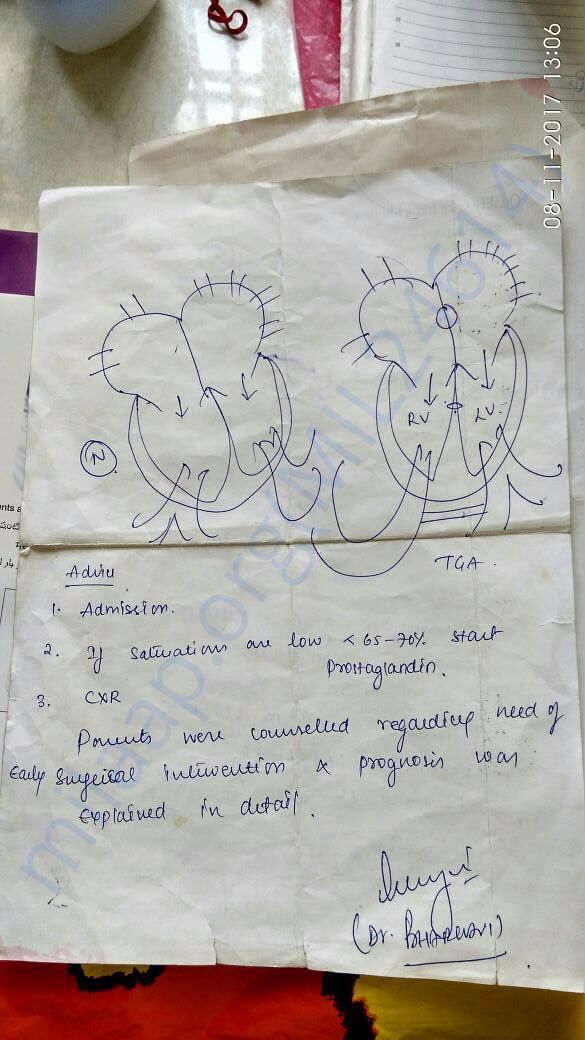 08-11-2017 13:06
milaap.org(MIL24614)
N
RV LV
TGA.
Advice
1. Admission.
2. If saturations are low < 65-70% start
Prostaglandin.
3. CXR
Parents were counselled regarding need of
Early Surgical intervention & prognosis was
explained in detail.
(Dr.